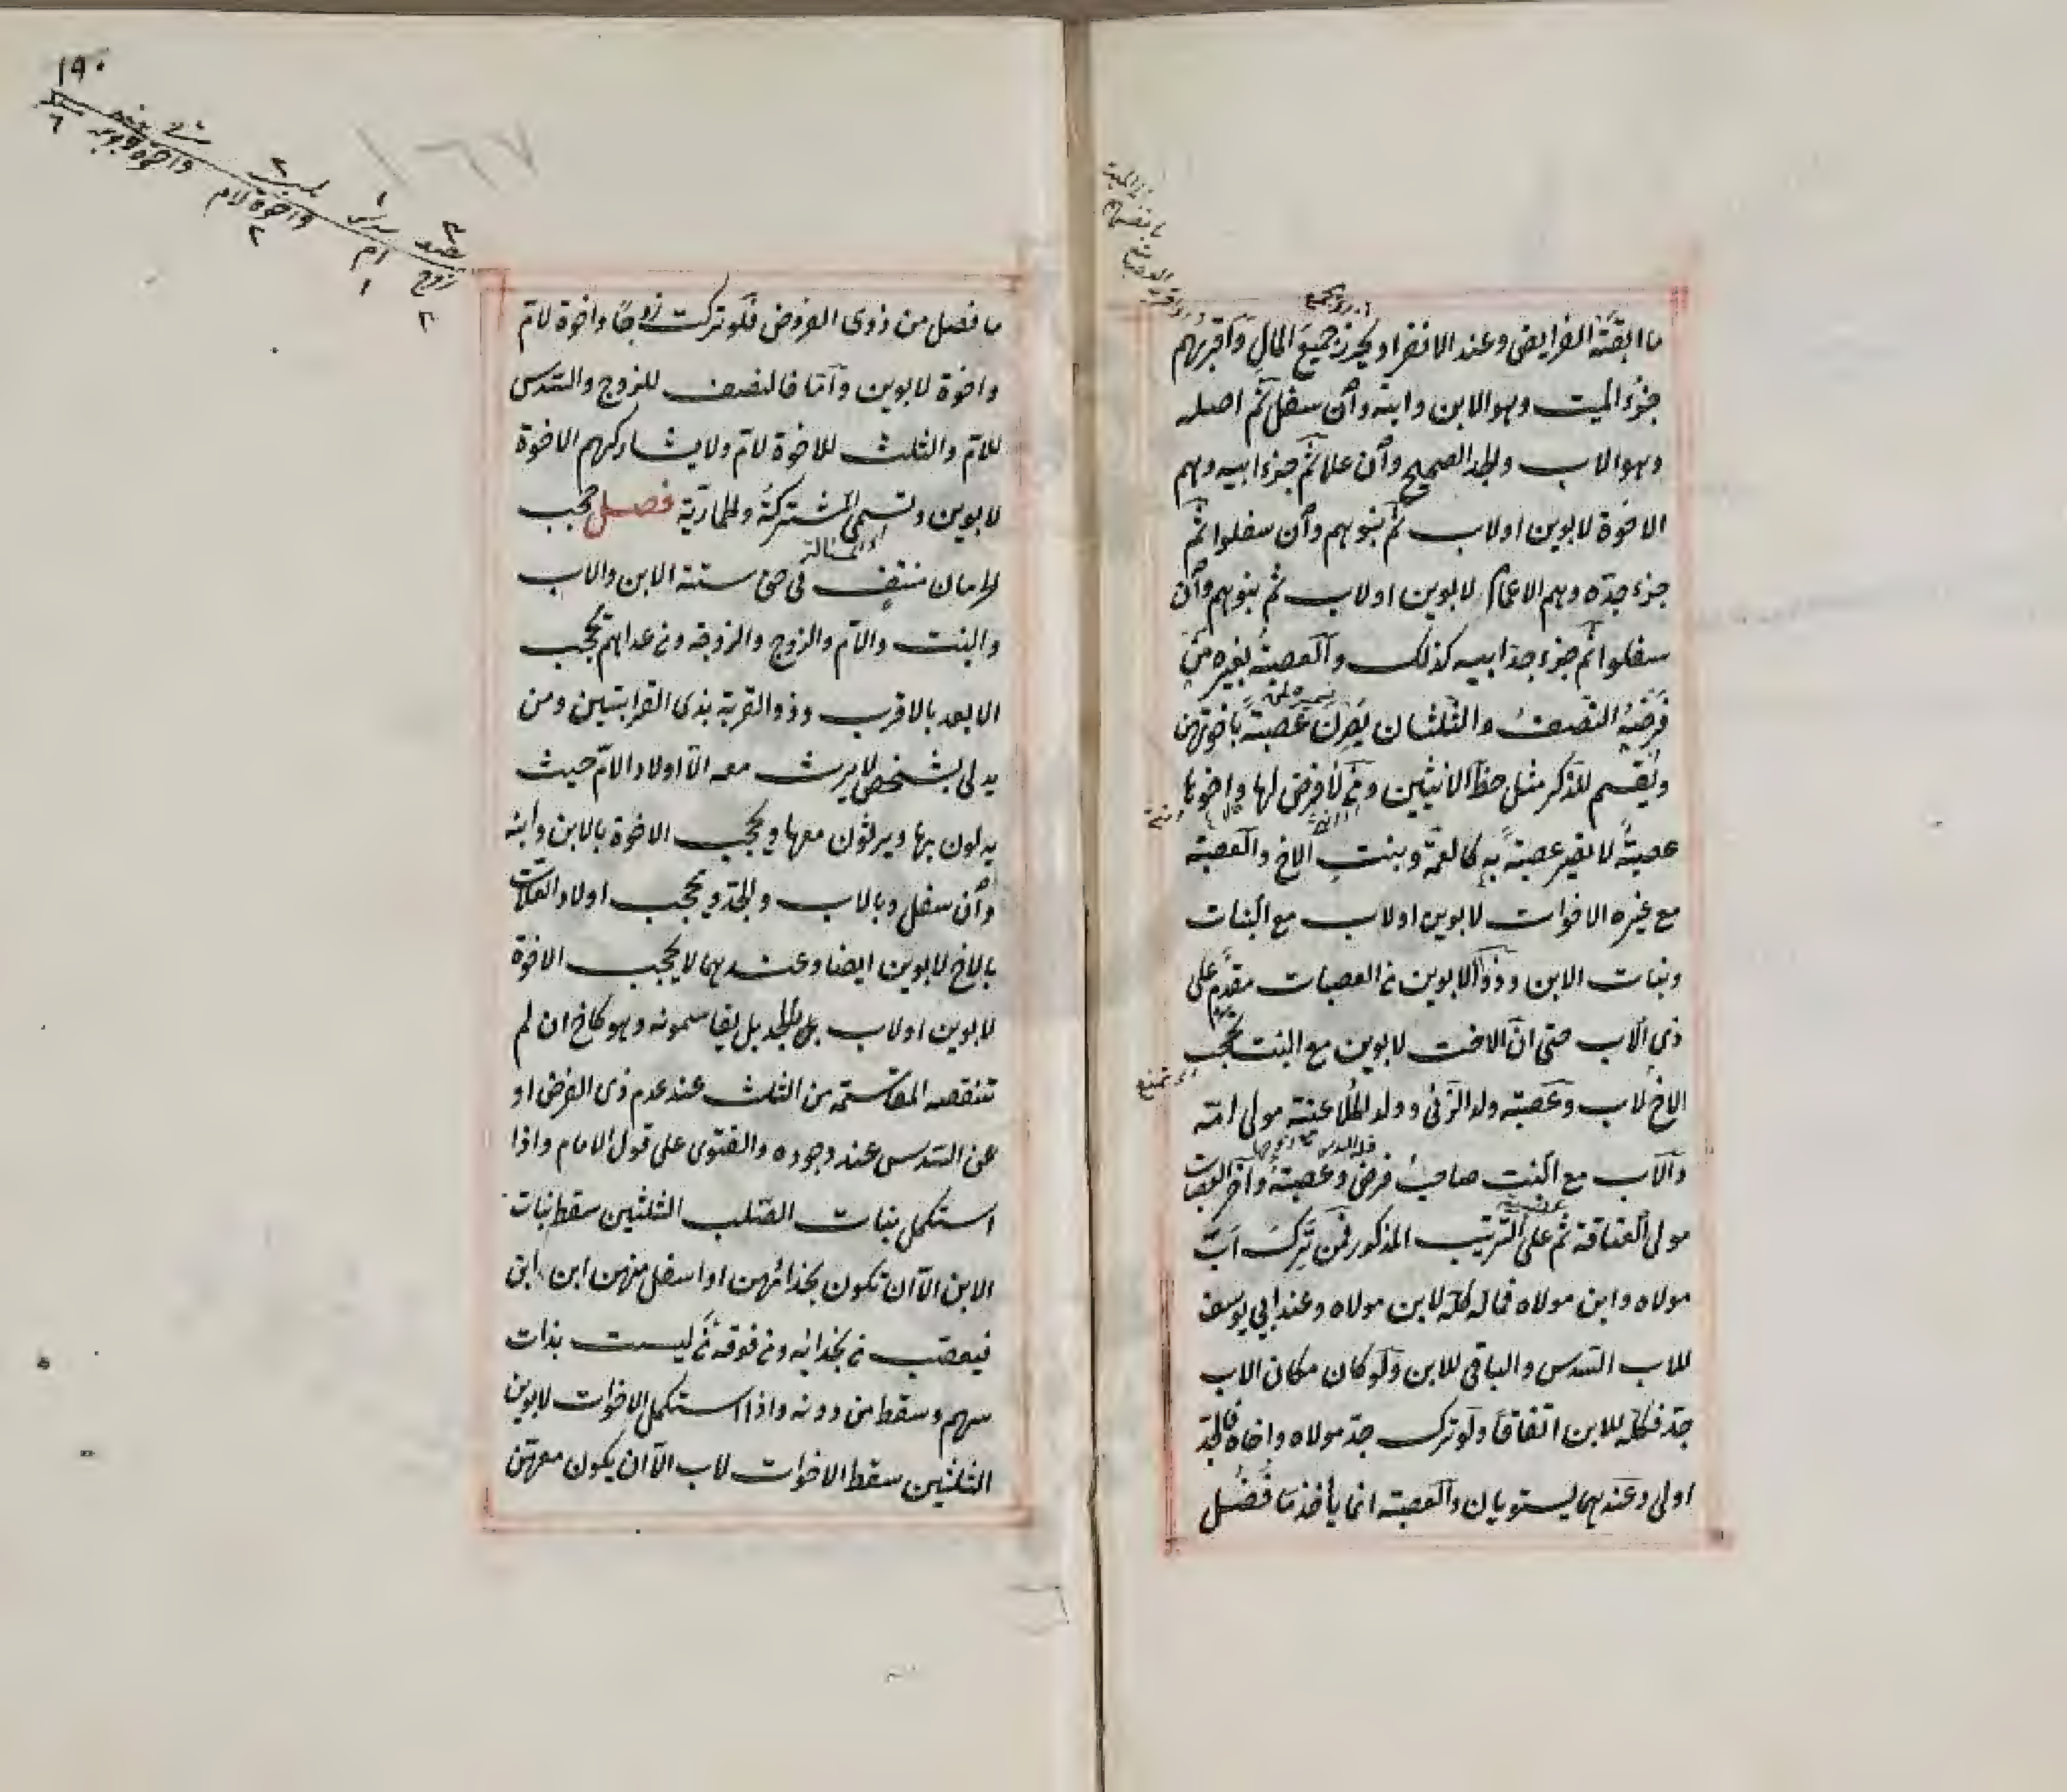 ما ابقته الفرايض وعند الانفراد يحرز جميع المال وأقربهم
جزء الميت وهو الابن وابنه وان سفل ثم اصله
وهو الاب والجد الصحيح وان علا ثم جزء ابيه وهم
الاخوة لابوين او لاب ثم بنوهم وان سفلوا ثم
جزء جده وهم الاعمام لابوين او لاب ثم بنوهم وان
سفلوا ثم جزء جد ابيه كذلك والعصبة بغيره من
فرضه النصف والثلثان يصرن عصبة باخوتهن
ويقسم للذكر مثل حظ الانثيين ومن لا فرض لها واخوها
عصبة لا تصير عصبة به كالعمة وبنت الاخ والعصبة
مع غيره الاخوات لابوين او لاب مع البنات
وبنات الابن وذو الابوين من العصبات مقدم على
ذي الاب حتى ان الاخت لابوين مع البنت تحجب
الاخ لاب وعصبة ولد الزنى وولد الملاعنة مولى امه
والاب مع البنت صاحب فرض وعصبة واخر العصبات
مولى العتاقة ثم على الترتيب المذكور فمن ترك اب
مولاه وابن مولاه فماله كله لابن مولاه وعند ابي يوسف
للاب السدس والباقي للابن ولو كان مكان الاب
جد فكله للابن اتفاقا ولو ترك جد مولاه واخاه فالجد
اولى وعندهما يستويان والعصبة انما يأخذ ما فضل
١٩٠
١٦٧
زوج
ام
واخوة لام
ما فضل من ذوى الفروض فلو تركت زوجا واخوة لام
واخوة لابوين وأما فالنصف للزوج والسدس
للام والثلث للاخوة لام ولا يشاركهم الاخوة
لابوين وتسمى المشتركة والحمارية فصل حجب
الحرمان منتف في حق ستة الابن والاب
والبنت والام والزوج والزوجة ومن عداهم يحجب
الابعد بالاقرب وذو القربة بذى القرابتين ومن
يدلى بشخص لا يرث معه الا اولاد الام حيث
يدلون بها ويرثون معها ويحجب الاخوة بالابن وابنه
وان سفل وبالاب والجد ويحجب اولاد العلات
بالاخ لابوين ايضا وعندهما لا يحجب الاخوة
لابوين او لاب بالجد بل يقاسمونه وهو كاخ ان لم
تنقصه المقاسمة من الثلث عند عدم ذى الفرض او
عن السدس عند وجوده والفتوى على قول الامام واذا
استكمل بنات الصلب الثلثين سقط بنات
الابن الا ان تكون بحذائهن او اسفل منهن ابن ابن
فيعصب من بحذائه ومن فوقه من ليست بذات
سهم وسقط من دونه واذا استكمل الاخوات لابوين
الثلثين سقط الاخوات لاب الا ان يكون معهن